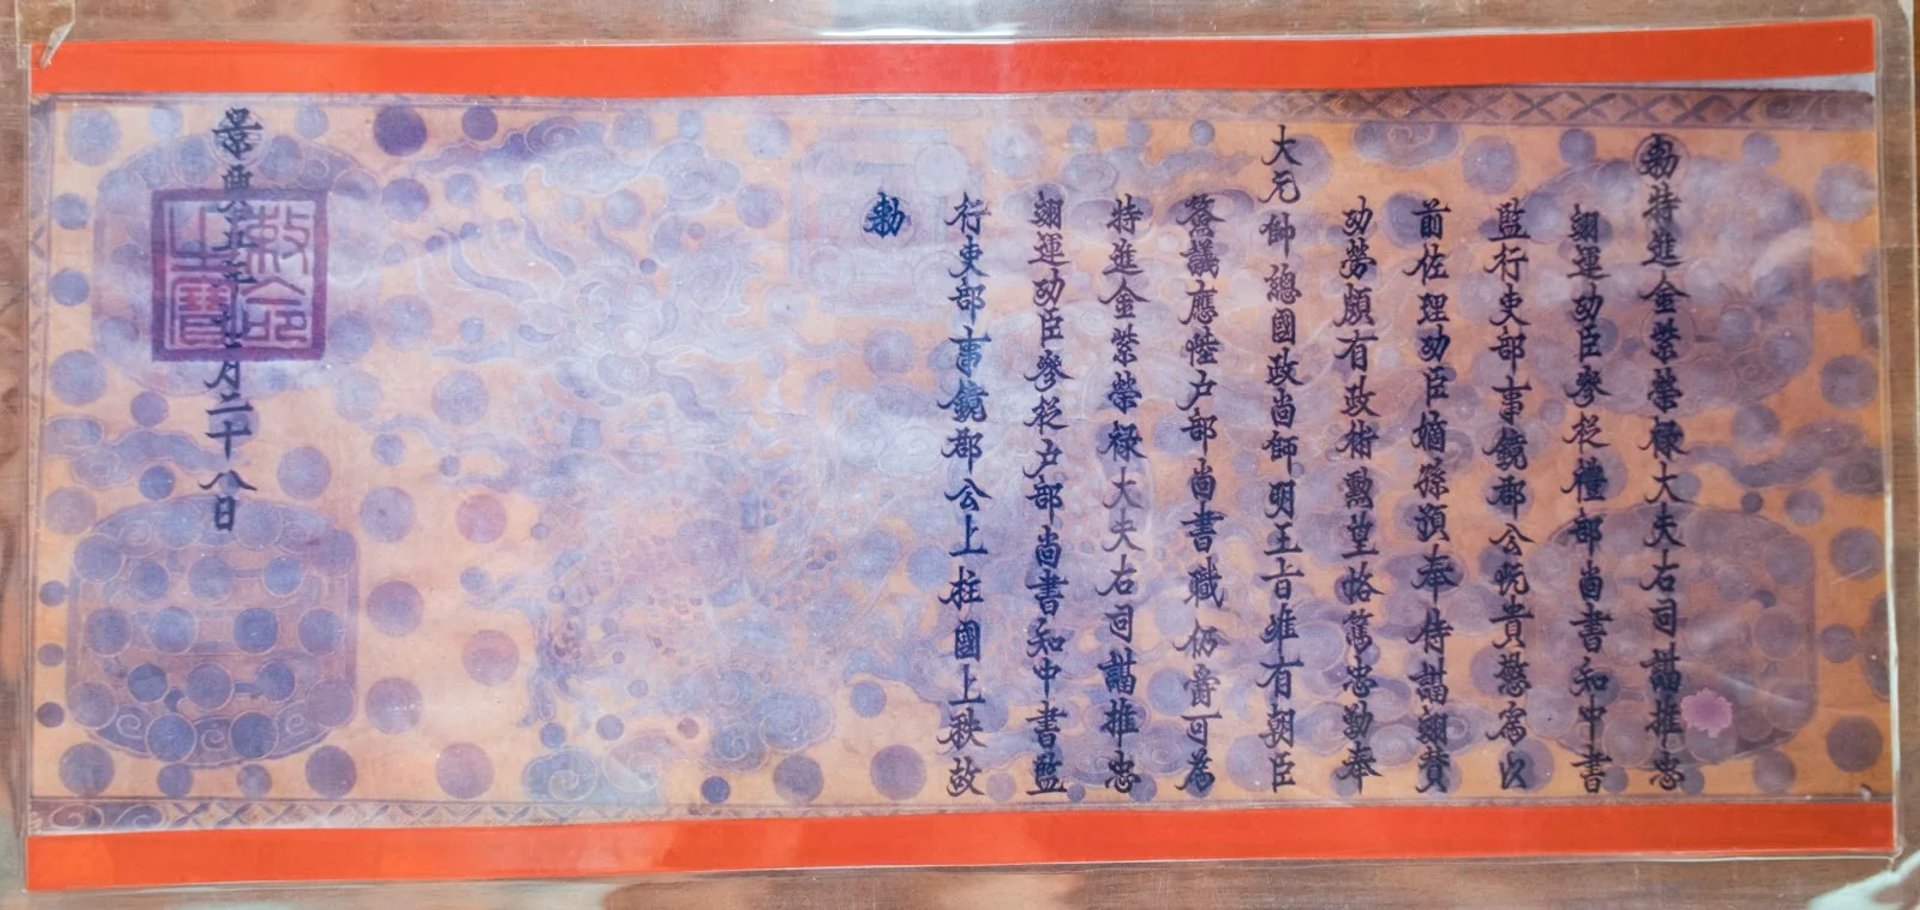 勅特進金紫榮祿大夫右司講推忠
翊運功臣參從禮部尚書知中書
監行吏部事鏡郡公阮貴憼爲以
前佐理功臣嫡孫預奉侍講翊贊
功勞頗有政術勳望恪篤忠勤奉
大元帥總國政尚師明王旨准有朝臣
簽議應陞户部尚書職仍爵可爲
特進金紫榮祿大夫右司講推忠
翊運功臣參從户部尚書知中書監
行吏部事鏡郡公上柱國上秩故
勅
景興五年七月二十八日
敕命之寶